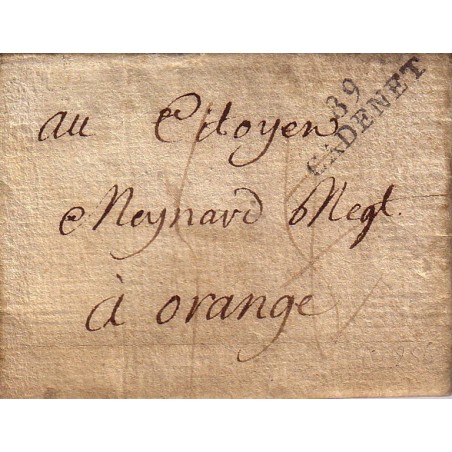 39
CADENET
au Citoyen
Meynard Negt.
à orange